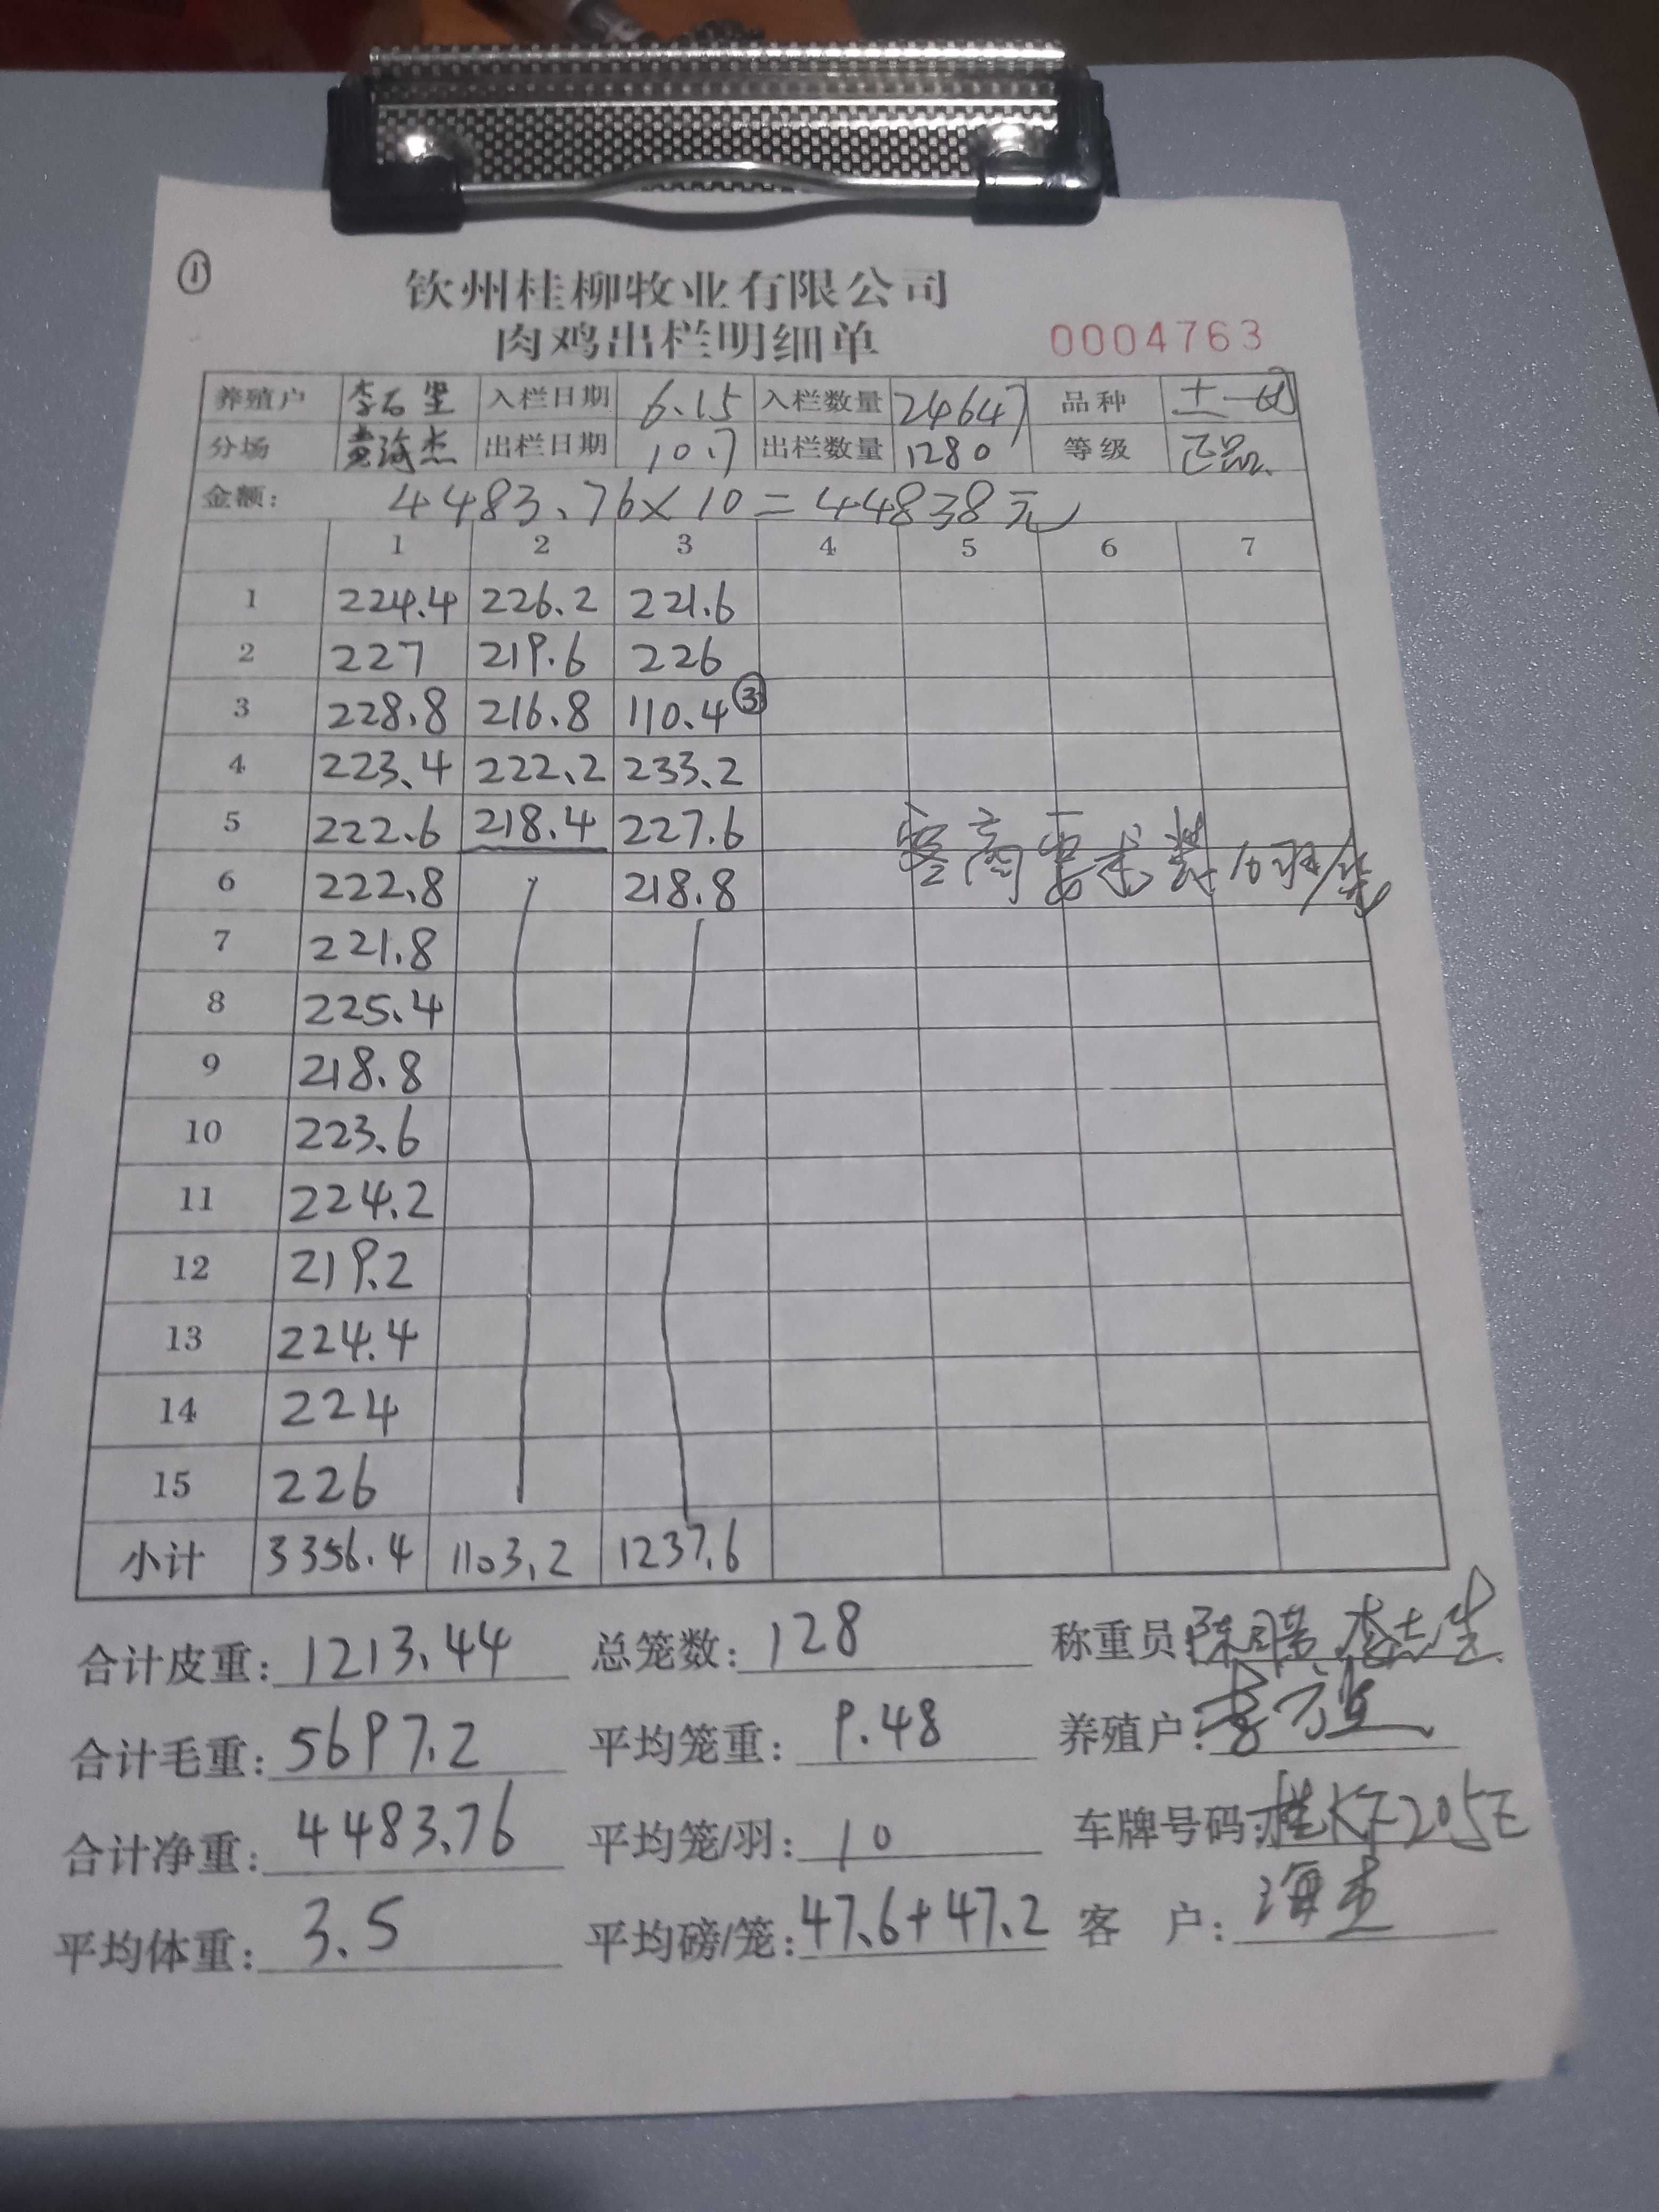 ①
钦州桂柳牧业有限公司
肉鸡出栏明细单 0004763
养殖户 李石坚 入栏日期 6.15 入栏数量 24647 品种 土一
分场 黄海杰 出栏日期 10.7 出栏数量 1280 等级 正品
金额: 4483.76×10=44838元
1 2 3 4 5 6 7
1 224.4 226.2 221.6
2 227 219.6 226
3 228.8 216.8 110.4 ③
4 223.4 222.2 233.2
5 222.6 218.4 227.6
客商要求装10羽/笼
6 222.8 218.8
7 221.8
8 225.4
9 218.8
10 223.6
11 224.2
12 219.2
13 224.4
14 224
15 226
小计 3356.4 1103.2 1237.6
合计皮重: 1213.44 总笼数: 128 称重员
合计毛重: 5697.2 平均笼重: 9.48 养殖户:
合计净重: 4483.76 平均笼/羽: 10 车牌号码: 桂KF205E
平均体重: 3.5 平均磅/笼: 47.6+47.2 客 户: 海杰